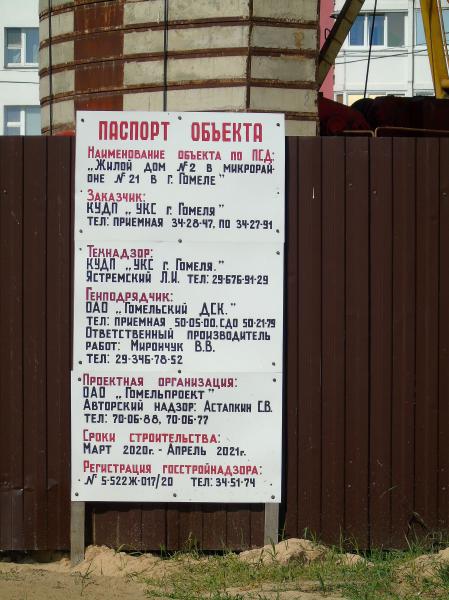 ПАСПОРТ ОБЪЕКТА
Наименование объекта по ПСД:
„Жилой дом №2 в микрорай-
оне №21 в г. Гомеле"
Заказчик:
КУДП „УКС г. Гомеля"
тел: приемная 34-28-47, ПО 34-27-91
Технадзор:
КУДП „УКС г. Гомеля."
Ястремский Л.И. тел: 29-676-91-29
Генподрядчик:
ОАО „Гомельский ДСК."
тел: приемная 50-05-00, СДО 50-21-79
Ответственный производитель
работ: Мирончук В.В.
тел: 29-346-78-52
Проектная организация:
ОАО „Гомельпроект"
Авторский надзор: Астапкин С.В.
тел: 70-06-88, 70-06-77
Сроки строительства:
Март 2020г.- Апрель 2021г.
Регистрация Госстройнадзора:
№ 5-522Ж-017/20 тел: 34-51-74